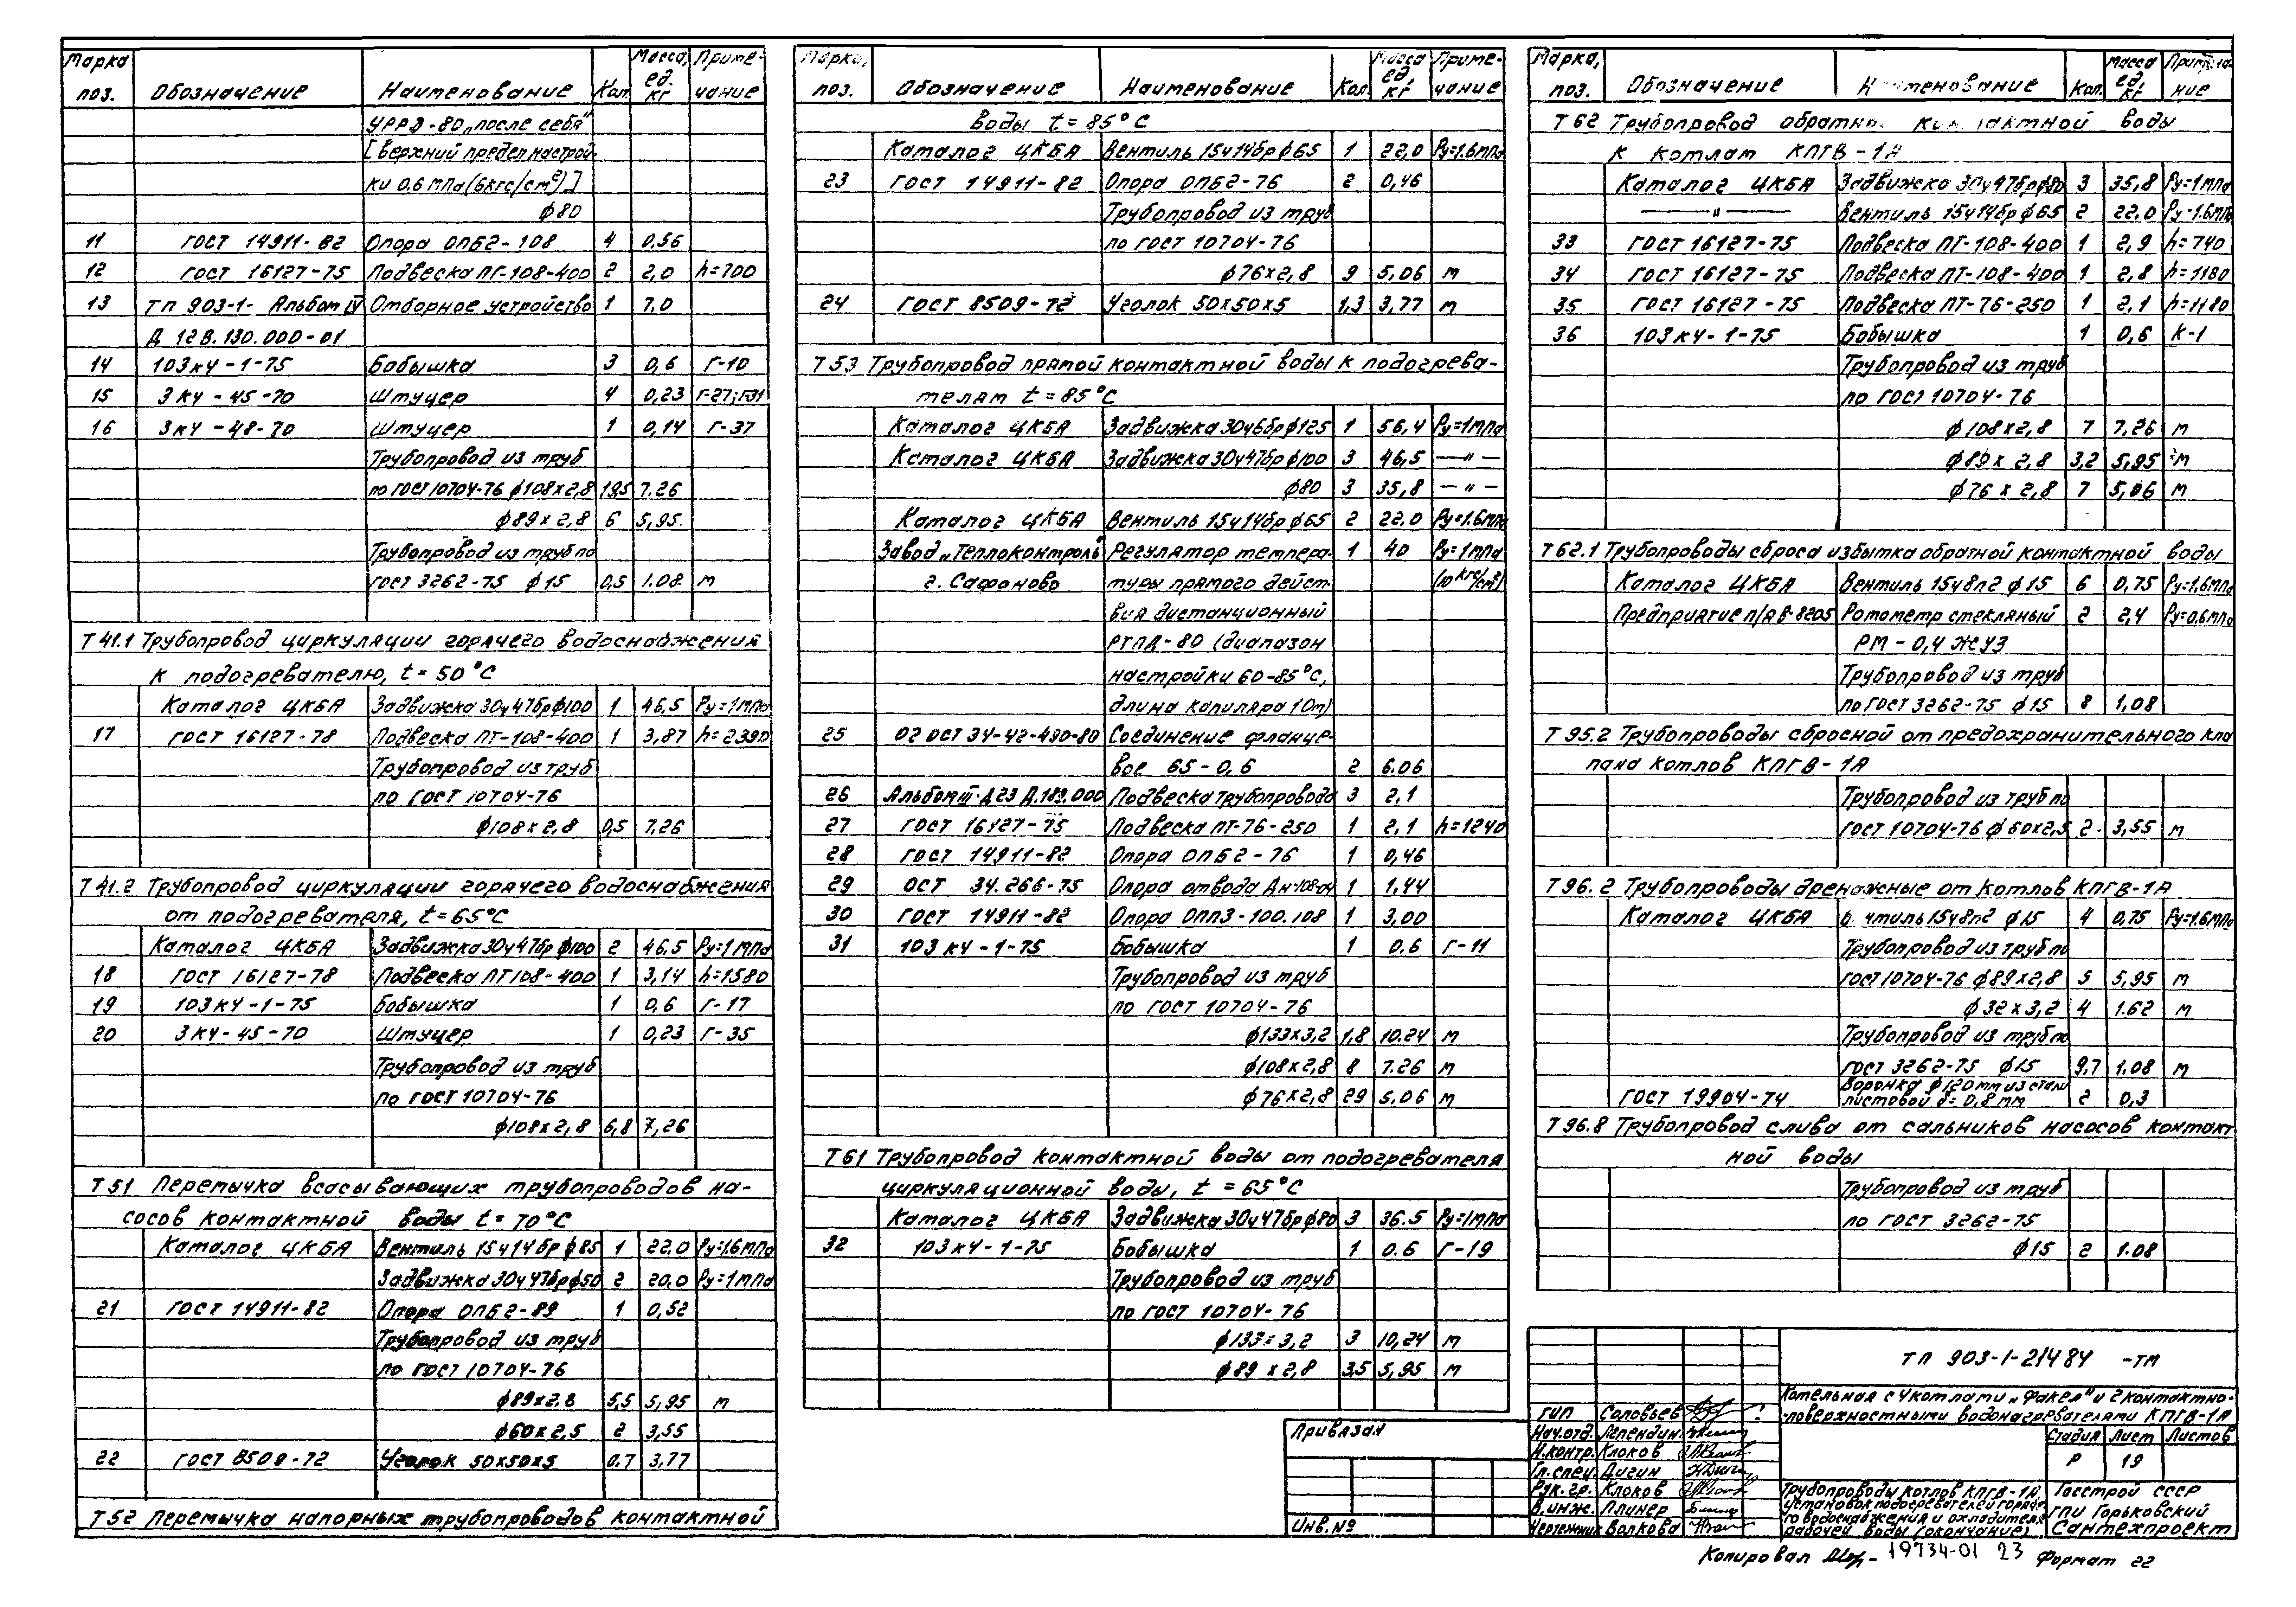 Марка поз. Обозначение Наименование Кол. Масса, ед. кг Примечание
УРРД-80 „после себя"
[верхний предел настрой-
ки 0.6 МПа (6кгс/см²)]
ф80
11 ГОСТ 14911-82 Опора ОПБ2-108 4 0,56
12 ГОСТ 16127-75 Подвеска ПГ-108-400 2 2,0 h=700
13 ТП 903-1- Альбом IV Отборное устройство 1 7.0
Д 12В.130.000-01
14 103к4-1-75 Бобышка 3 0,6 Г-10
15 3к4-45-70 Штуцер 4 0,23 Г-27; Г-31
16 3к4-48-70 Штуцер 1 0,14 Г-37
Трубопровод из труб
по ГОСТ 10704-76 ф108х2,8 19,5 7.26
ф89х2,8 6 5,95
Трубопровод из труб по
ГОСТ 3262-75 ф15 0,5 1.08 м
Т41.1 Трубопровод циркуляции горячего водоснабжения
к подогревателю, t=50°С
Каталог ЦКБА Задвижка 30ч47бр ф100 1 46,5 Ру=1МПа
17 ГОСТ 16127-78 Подвеска ПТ-108-400 1 3,87 h=2390
Трубопровод из труб
по ГОСТ 10704-76
ф108х2,8 0,5 7,26
Т41.2 Трубопровод циркуляции горячего водоснабжения
от подогревателя, t=65°С
Каталог ЦКБА Задвижка 30ч47бр ф100 2 46,5 Ру=1МПа
18 ГОСТ 16127-78 Подвеска ПТ108-400 1 3,14 h=1580
19 103к4-1-75 Бобышка 1 0,6 Г-17
20 3к4-45-70 Штуцер 1 0,23 Г-35
Трубопровод из труб
по ГОСТ 10704-76
ф108х2,8 6,8 7,26
Т51 Перемычка всасывающих трубопроводов на-
сосов контактной воды t=70°С
Каталог ЦКБА Вентиль 15ч14бр ф85 1 22,0 Ру=1.6МПа
Задвижка 30ч47бр ф50 2 20,0 Ру=1МПа
21 ГОСТ 14911-82 Опора ОПБ2-89 1 0,52
Трубопровод из труб
по ГОСТ 10704-76
ф89х2,8 5,5 5,95 м
ф60х2,5 2 3,55
22 ГОСТ 8509-72 Уголок 50х50х5 0,7 3,77
Т52 Перемычка напорных трубопроводов контактной
Марка, поз. Обозначение Наименование Кол. Масса ед. кг Примечание
воды t=85°С
Каталог ЦКБА Вентиль 15ч14бр ф65 1 22,0 Ру=1.6МПа
23 ГОСТ 14911-82 Опора ОПБ2-76 2 0,46
Трубопровод из труб
по ГОСТ 10704-76
ф76х2,8 9 5,06 м
24 ГОСТ 8509-72 Уголок 50х50х5 1,3 3,77 м
Т53 Трубопровод прямой контактной воды к подогрева-
телям t=85°С
Каталог ЦКБА Задвижка 30ч6бр ф125 1 56,4 Ру=1МПа
Каталог ЦКБА Задвижка 30ч47бр ф100 3 46,5 —"—
ф80 3 35,8 —"—
Каталог ЦКБА Вентиль 15ч14бр ф65 2 22.0 Ру=1.6МПа
Завод „Теплоконтроль" Регулятор темпера- 1 40 Ру=1МПа
г. Сафоново туры прямого дейст- (10кгс/см²)
вия дистанционный
РТПД-80 (диапазон
настройки 60-85°С,
длина капиляра 10м)
25 02 ОСТ 34-42-490-80 Соединение фланце-
вое 65-0,6 2 6.06
26 Альбом III-Д23 Д.189.000 Подвеска трубопровода 3 2,1
27 ГОСТ 16127-75 Подвеска ПТ-76-250 1 2,1 h=1240
28 ГОСТ 14911-82 Опора ОПБ2-76 1 0,46
29 ОСТ 34.266-75 Опора отвода Дн-108-04 1 1,44
30 ГОСТ 14911-82 Опора ОПП3-100.108 1 3,00
31 103к4-1-75 Бобышка 1 0.6 Г-11
Трубопровод из труб
по ГОСТ 10704-76
ф133х3,2 1,8 10.24 м
ф108х2,8 8 7.26 м
ф76х2,8 29 5.06 м
Т61 Трубопровод контактной воды от подогревателя
циркуляционной воды, t=65°С
Каталог ЦКБА Задвижка 30ч47бр ф80 3 36.5 Ру=1МПа
32 103к4-1-75 Бобышка 1 0.6 Г-19
Трубопровод из труб
по ГОСТ 10704-76
ф133х3,2 3 10,24 м
ф89х2,8 3,5 5,95 м
Марка, поз. Обозначение Наименование Кол. Масса ед. кг Примечание
Т62 Трубопровод обратной контактной воды
к котлам КПГВ-1А
Каталог ЦКБА Задвижка 30ч47бр ф80 3 35,8 Ру=1МПа
—"— Вентиль 15ч14бр ф65 2 22,0 Ру=1.6МПа
33 ГОСТ 16127-75 Подвеска ПГ-108-400 1 2,9 h=740
34 ГОСТ 16127-75 Подвеска ПТ-108-400 1 2,8 h=1180
35 ГОСТ 16127-75 Подвеска ПТ-76-250 1 2,1 h=1180
36 103к4-1-75 Бобышка 1 0,6 К-1
Трубопровод из труб
по ГОСТ 10704-76
ф108х2,8 7 7,26 м
ф89х2,8 3,2 5,95 м
ф76х2,8 7 5,06 м
Т62.1 Трубопроводы сброса избытка обратной контактной воды
Каталог ЦКБА Вентиль 15ч8п2 ф15 6 0,75 Ру=1.6МПа
Предприятие п/я В-8205 Ротометр стекляный 2 2,4 Ру=0.6МПа
РМ-0,4 ЖУЗ
Трубопровод из труб
по ГОСТ 3262-75 ф15 8 1,08
Т95.2 Трубопроводы сбросной от предохранительного кла
пана котлов КПГВ-1А
Трубопровод из труб по
ГОСТ 10704-76 ф60х2,5 2 3,55 м
Т96.2 Трубопроводы дренажные от котлов КПГВ-1А
Каталог ЦКБА Вентиль 15ч8п2 ф15 4 0,75 Ру=1.6МПа
Трубопровод из труб по
ГОСТ 10704-76 ф89х2,8 5 5,95 м
ф32х3,2 4 1.62 м
Трубопровод из труб по
ГОСТ 3262-75 ф15 9,7 1.08 м
Воронка ф120мм из стали
ГОСТ 19904-74 листовой d=0,8мм 2 0,3
Т96.8 Трубопровод слива от сальников насосов контакт
ной воды
Трубопровод из труб
по ГОСТ 3262-75
ф15 2 1.08
Привязан
Инв.№
ТП 903-1-214 84 -ТМ
Котельная с 4 котлами „Факел" и 2 контактно-
-поверхностными водонагревателями КПГВ-1А
ГИП Соловьев
Нач.отд. Лепендин
Н.контр. Клоков
Гл.спец. Дигин
Рук.гр. Клоков
В.инж. Плинер
Чертежник Волкова
Стадия Лист Листов
Р 19
Трубоповоды котлов КПГВ-1А,
установок подогревателей горяче-
го водоснабжения и охладителя
рабочей воды (окончание)
Госстрой СССР
ГПИ Горьковский
Сантехпроект
Копировал 19734-01 23 Формат 22